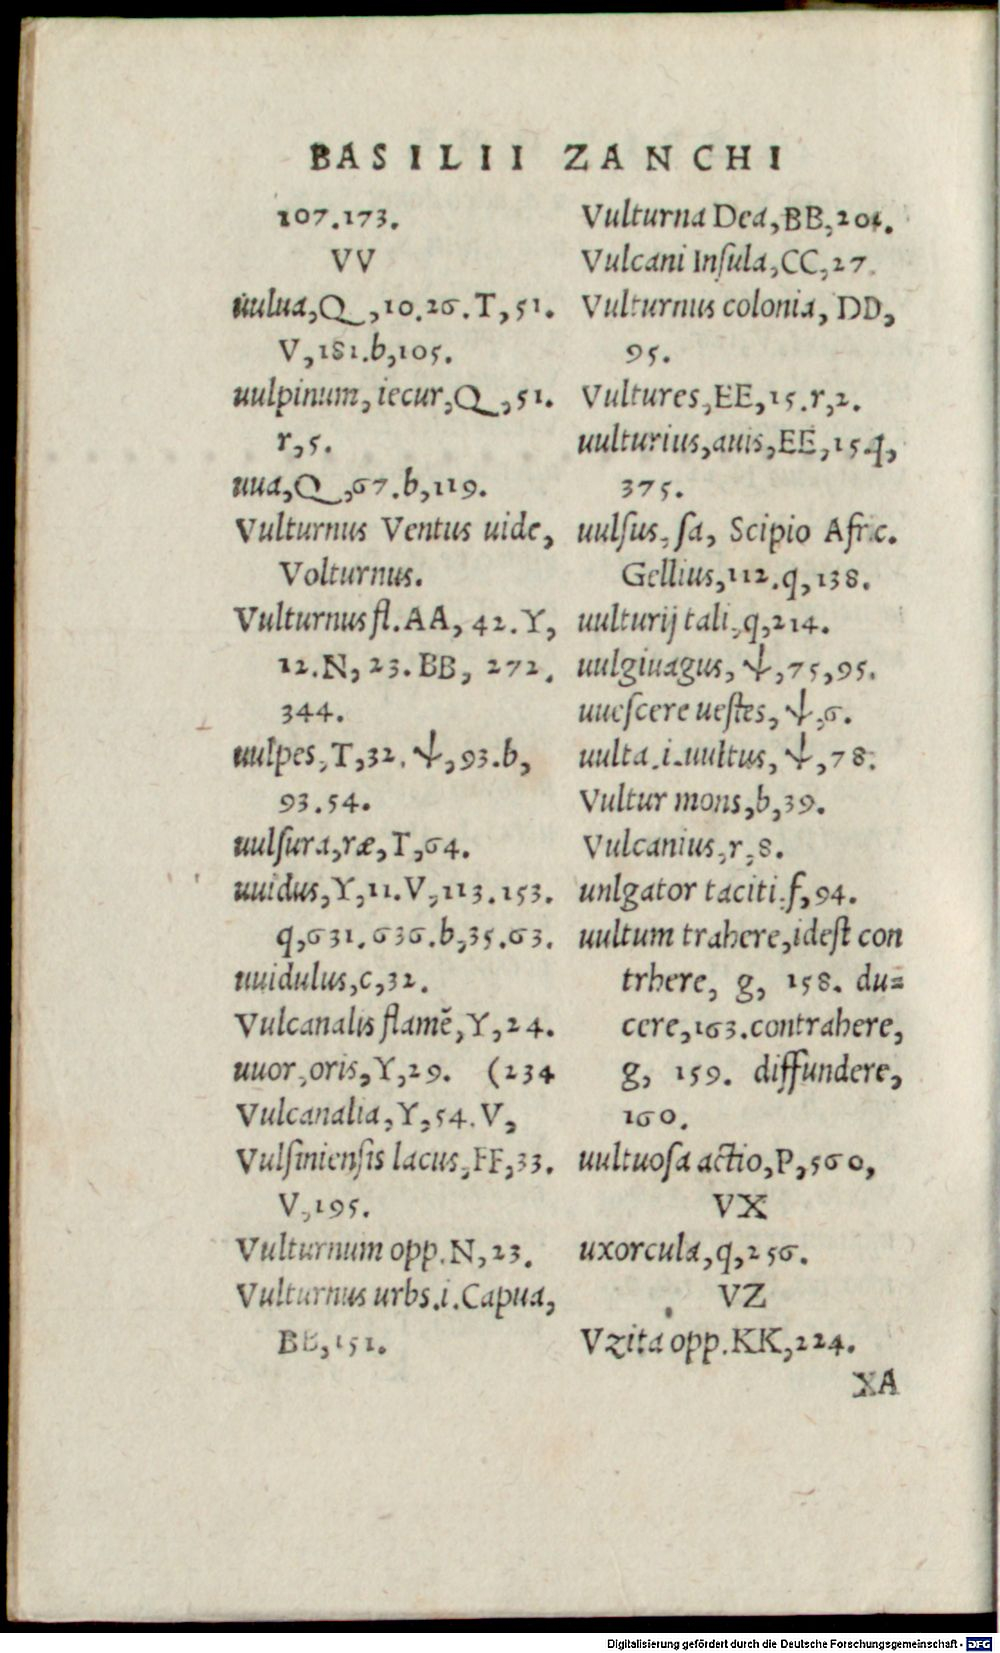 BASILII ZANCHI
107.173.
VV
uulua,Q,10.26.T,51.
V,181.b,105.
uulpinum, iecur,Q,51.
r,5.
uua,Q,67.b,119.
Vulturnus Ventus uide,
Volturnus.
Vulturnus fl.AA, 42.Y,
12.N, 23.BB, 272.
344.
uulpes,T,32.ψ,93.b,
93.54.
uulſura,ræ,T,64.
uuidus,Y,11.V,113.153.
q,631.636.b,35.63.
uuidulus,c,32.
Vulcanalis flamē,Y,24.
uuor,oris,Y,29. (234
Vulcanalia,Y,54.V,
Vulſinienſis lacus,FF,33.
V,195.
Vulturnum opp.N,23.
Vulturnus urbs.i.Capua,
BB,151.
Vulturna Dea,BB,
Vulcani Inſula,CC,27.
Vulturnus colonia, DD,
95.
Vultures,EE,15.r,2.
uulturius,auis,EE,15.q,
375.
uulſus, ſa, Scipio Afric.
Gellius,112.q,138.
uulturij tali,q,214.
uulgiuagus, ψ,75,95.
uueſcere ueſtes, ψ,6.
uulta.i.uultus, ψ,78.
Vultur mons,b,39.
Vulcanius,r,8.
unlgator taciti.f,94.
uultum trahere,ideſt con
trhere, g, 158. du=
cere,163.contrahere,
g, 159. diffundere,
160.
uultuoſa actio,P,560,
VX
uxorcula,q,256.
VZ
Vzita opp.KK,224.
XA
Digitalisierung gefördert durch die Deutsche Forschungsgemeinschaft - DFG